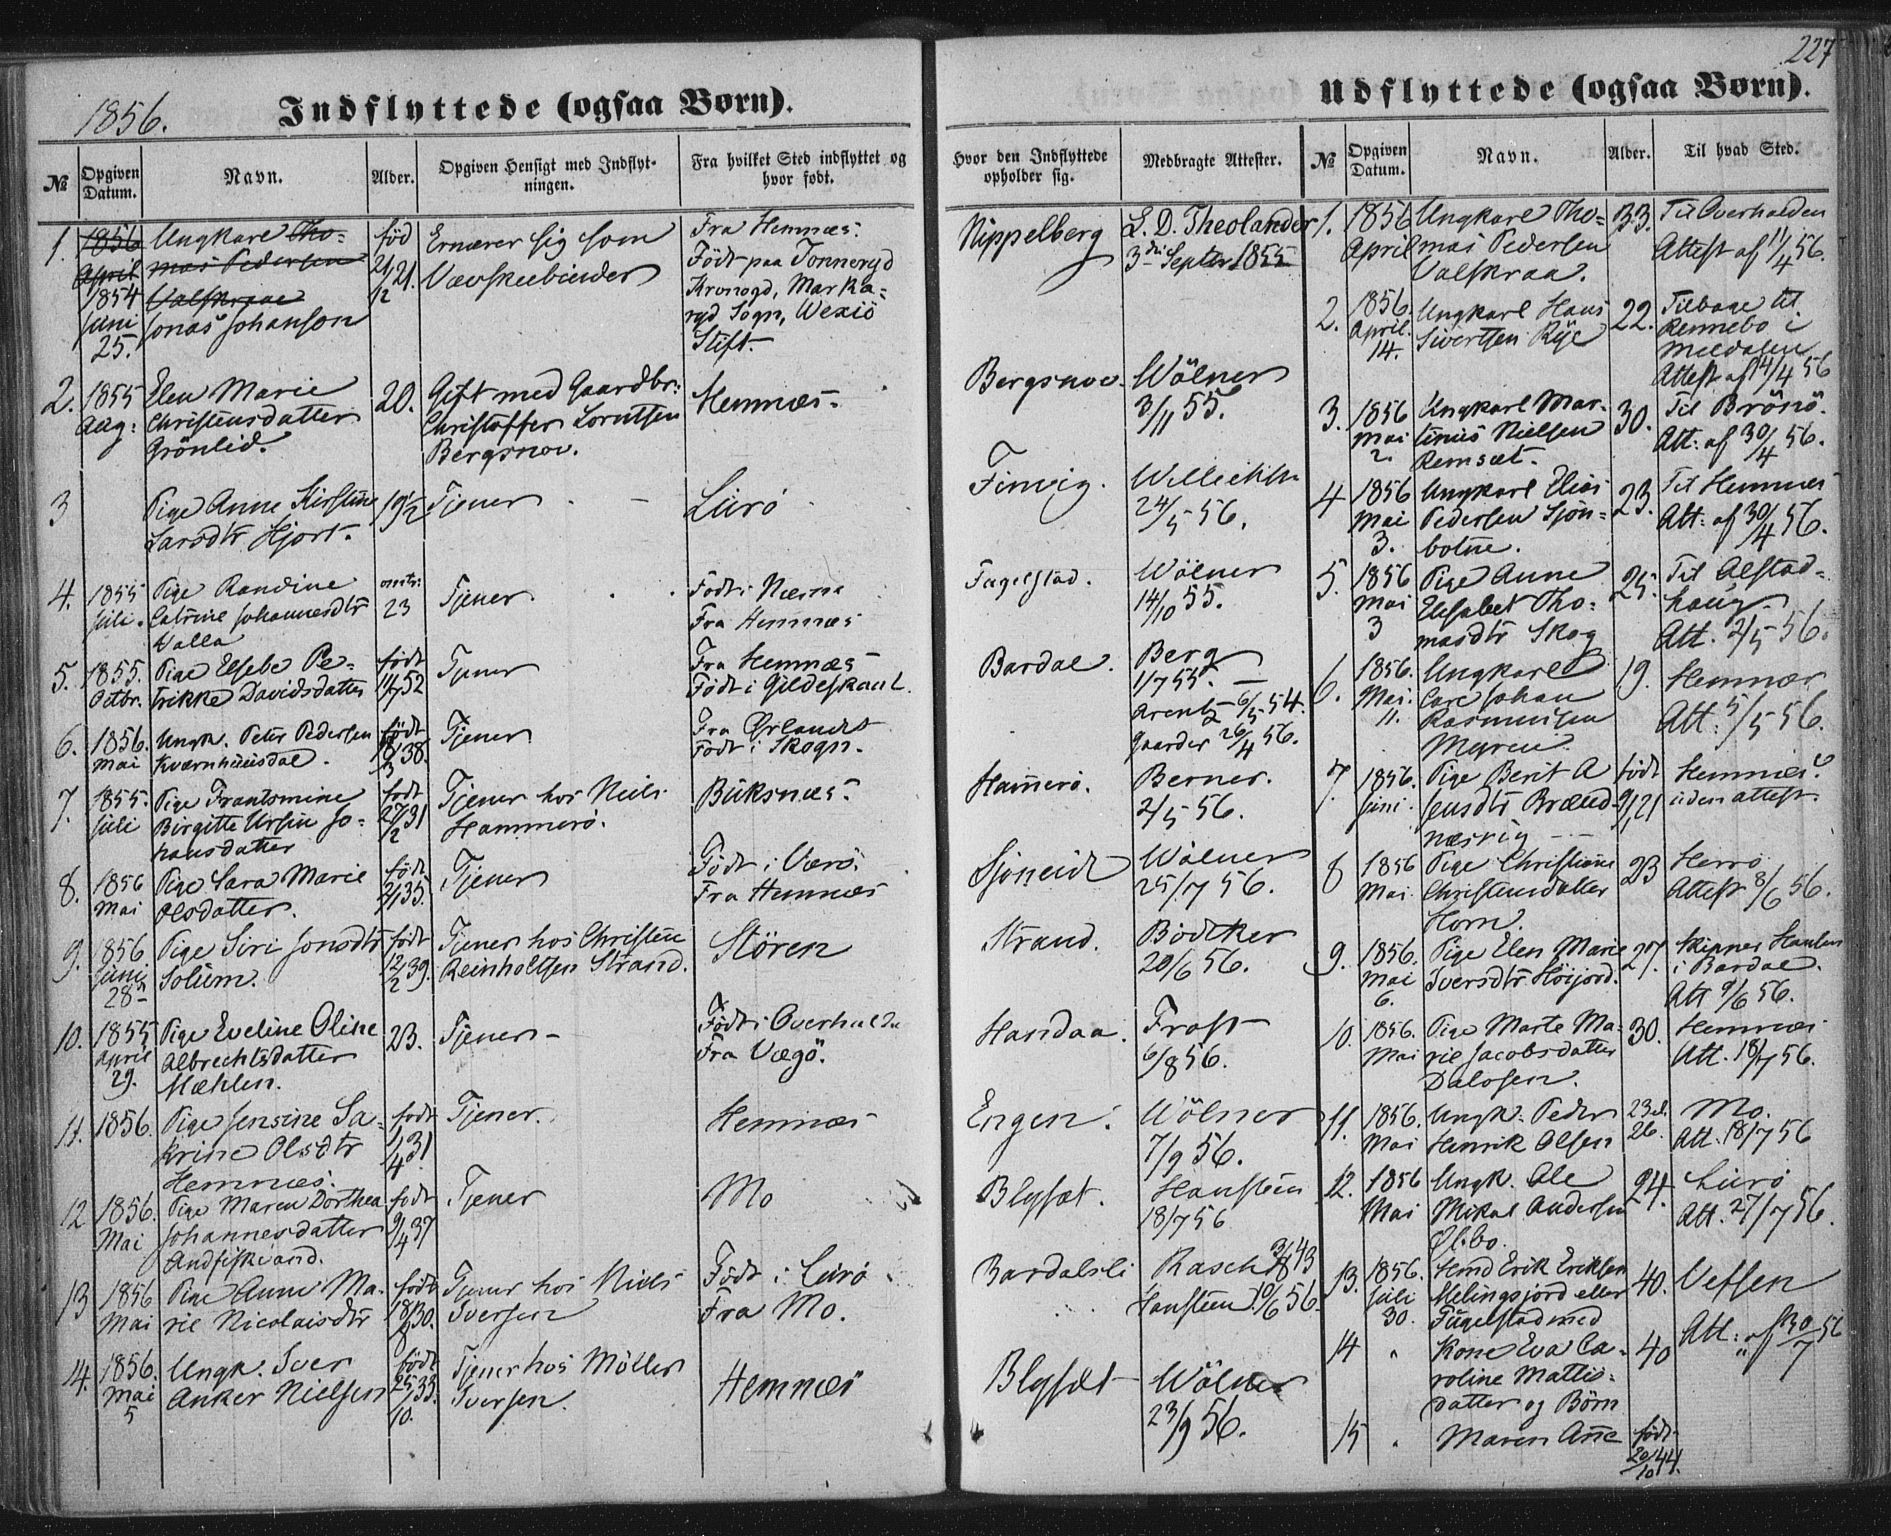 227
1856.
Indflyttede (ogsaa Børn).
Udflyttede (ogsaa Børn).
№
Opgiven Datum.
Navn.
Alder.
Opgiven Hensigt med Indflytningen.
Fra hvilket Sted indflyttet og hvor født.
Hvor den Indflyttede opholder sig.
Medbragte Attester.
№
Opgiven Datum.
Navn.
Alder.
Til hvad Sted.
1. 1856 Ungkarl Tho- født Ernærer sig som Fra Hemnæs.
April mas Pedersen 21. Vævskeebinder Født paa Tonneryd
1854 Valskraae Kronogd, Marka-
Juni Jonas Johanson ryd Sogn, Wexiö
25. Stift.
Nippelberg L. D. Theolander
3die Septbr 1855
2. 1855 Elen Marie 20. Gift med Gaardbr: Hemnæs.
Aug: Christensdatter Christoffer Lorntsen
Grönlid. Bergsnov.
Bergsnov. Wölner
3/11 55.
3 Pige Anne Kirstine 19 1/2 Tjener Lurö
Larsdtr Hjort.
Finvig.
24/5 56.
4. 1855 Pige Randine omtr: Tjener Født i Næsna
Juli. Catrine Johannesdtr 23 Fra Hemnæs
Valla
Fagelstad. Wölner
14/10 55.
5. 1855. Pige Elsebe Pe- født Tjener Fra Hemnæs
Octbr. trikke Davidsdatter Født i Gildeskaal.
Bardal. Berg
1/7 55.
Arentz 6/5 54.
6. 1856. Ungk. Peter Pedersen født Tjener Fra Ørlandet
Mai Kværnhuusdal. 38. Født i Skogn.
Gaarder 26/4 56.
7. 1855. Pige Frantsmine født Tjener hos Niels Buksnæs.
Juli Birgitte Ursin Jo- 27/2 31 Hammerö.
hansdatter
Hamerö. Berner.
2/5 56.
8. 1856 Pige Sara Marie født Tjener Født i Værö
Mai Olsdatter. 35. Fra Hemnæs
Sjöneidt Wölner
25/7 56.
9. 1856 Pige Siri Jonsdtr født Tjener hos Christen Stören
Juni Solum. 12/2 39. Reinholtsen Strand.
28
Strand. Bödtker
20/6 56.
10. 1855 Pige Eveline Oline 23. Tjener Født i Overhalden
April Albrechtsdatter Fra Vægö.
29. Mæhlen.
Handaa. Frost
6/8 56.
11. 1856. Pige Jensine Sa- født Tjener. Hemnæs
krine Olsdtr 31
Hemnæs.
Engen. Wölner
7/9 56.
12 1856. Pige Maren Dorthea født Tjener Mo
Mai Johannesdatter 9/4 37
Andfiskeand.
Blysæt. Hansteen
18/7 56
13 1856 Pige Anne Ma- født Tjener hos Niels Født i Lurö
Mai rie Nicolaisdtr 18/8 30. Iversen Fra Mo.
Bardalsli Rasch 3/8 43
Hansteen 10/6 56.
14. 1856. Ungk. Iver født Tjener hos Möller Hemnæs
Mai Anker Nielsen 25/10 33. Iversen.
5
Blysæt Wölner
23/9 56.
1. 1856 Ungkarl Tho- 33. Til Overhalden
April mas Pedersen Attest af 11/4 56.
Valskraa.
2. 1856. Ungkarl Hans 22. Tilbage til
April. Sivertsen Rye Rennebo i
14. Meldalen
Attest af 14/4 56
3. 1856 Ungkarl Mar- 30. Til Brönö.
Mai tinus Nielsen Att: af 30/4 56.
2. Remsæt.
4 1856 Ungkarl Elias 23. Til Hemnæs
Mai Pedersen Sjön- Att: af 30/4 56.
3. botne.
5. 1856 Pige Anne 25. Til Alstad-
Mai Elisabet Tho- houg.
3 masdtr Skog Att. 2/5 56.
6. 1856. Ungkarl 19. Hemnæs
Mai. Carl Johan Att: 5/5 56.
11. Rasmussen
Myren
7. 1856. Pige Berit A født Hemnæs
Juni. Jensdtr Brænd- 21 uden attest.
næsvig
8 1856 Pige Christiane 23 Herrö
Mai. Christensdatter Attest 8/6 56.
Horn.
9. 1856. Pige Elen Marie 27. Skipper Hansen
Mai Iversdtr Höijord. i Bardal.
6. Att 9/6 56.
10. 1856. Pige Marte Ma- 30. Hemnæs
Mai rie Jacobsdatter Att. 18/7 56.
Dalosen.
11. 1856. Ungk. Peder 23 el. Mo.
Mai Henrik Olsen 26. Att. 18/7 56
12. 1856 Ungk. Ole 24. Lurö
Mai Mikal Andersen Att. 27/7 56.
Ølbo.
13. 1856. Huusmd Erik Eriksen 40. Vefsen
Juli Melingsjord eller
30. Fugelstad med Att: af 30/7 56
14 " Kone Eva Ca- 40
roline Mattis-
datter og Børn
15 Maren Anne født
20/10 44.